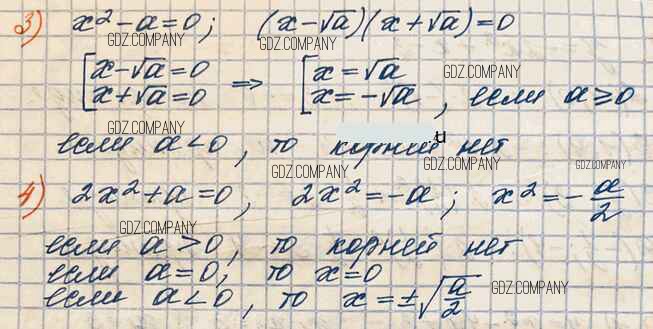 3) x² - a = 0; (x - √a)(x + √a) = 0
GDZ.COMPANY GDZ.COMPANY
[x - √a = 0 => [x = √a GDZ.COMPANY
x + √a = 0 x = -√a, если a ≥ 0
GDZ.COMPANY
если a < 0, то корней нет
GDZ.COMPANY GDZ.COMPANY GDZ.COMPANY
4) 2x² + a = 0, 2x² = -a; x² = -a/2
GDZ.COMPANY
если a > 0, то корней нет
если a = 0; то x = 0
если a < 0, то x = ±√(a/2) GDZ.COMPANY